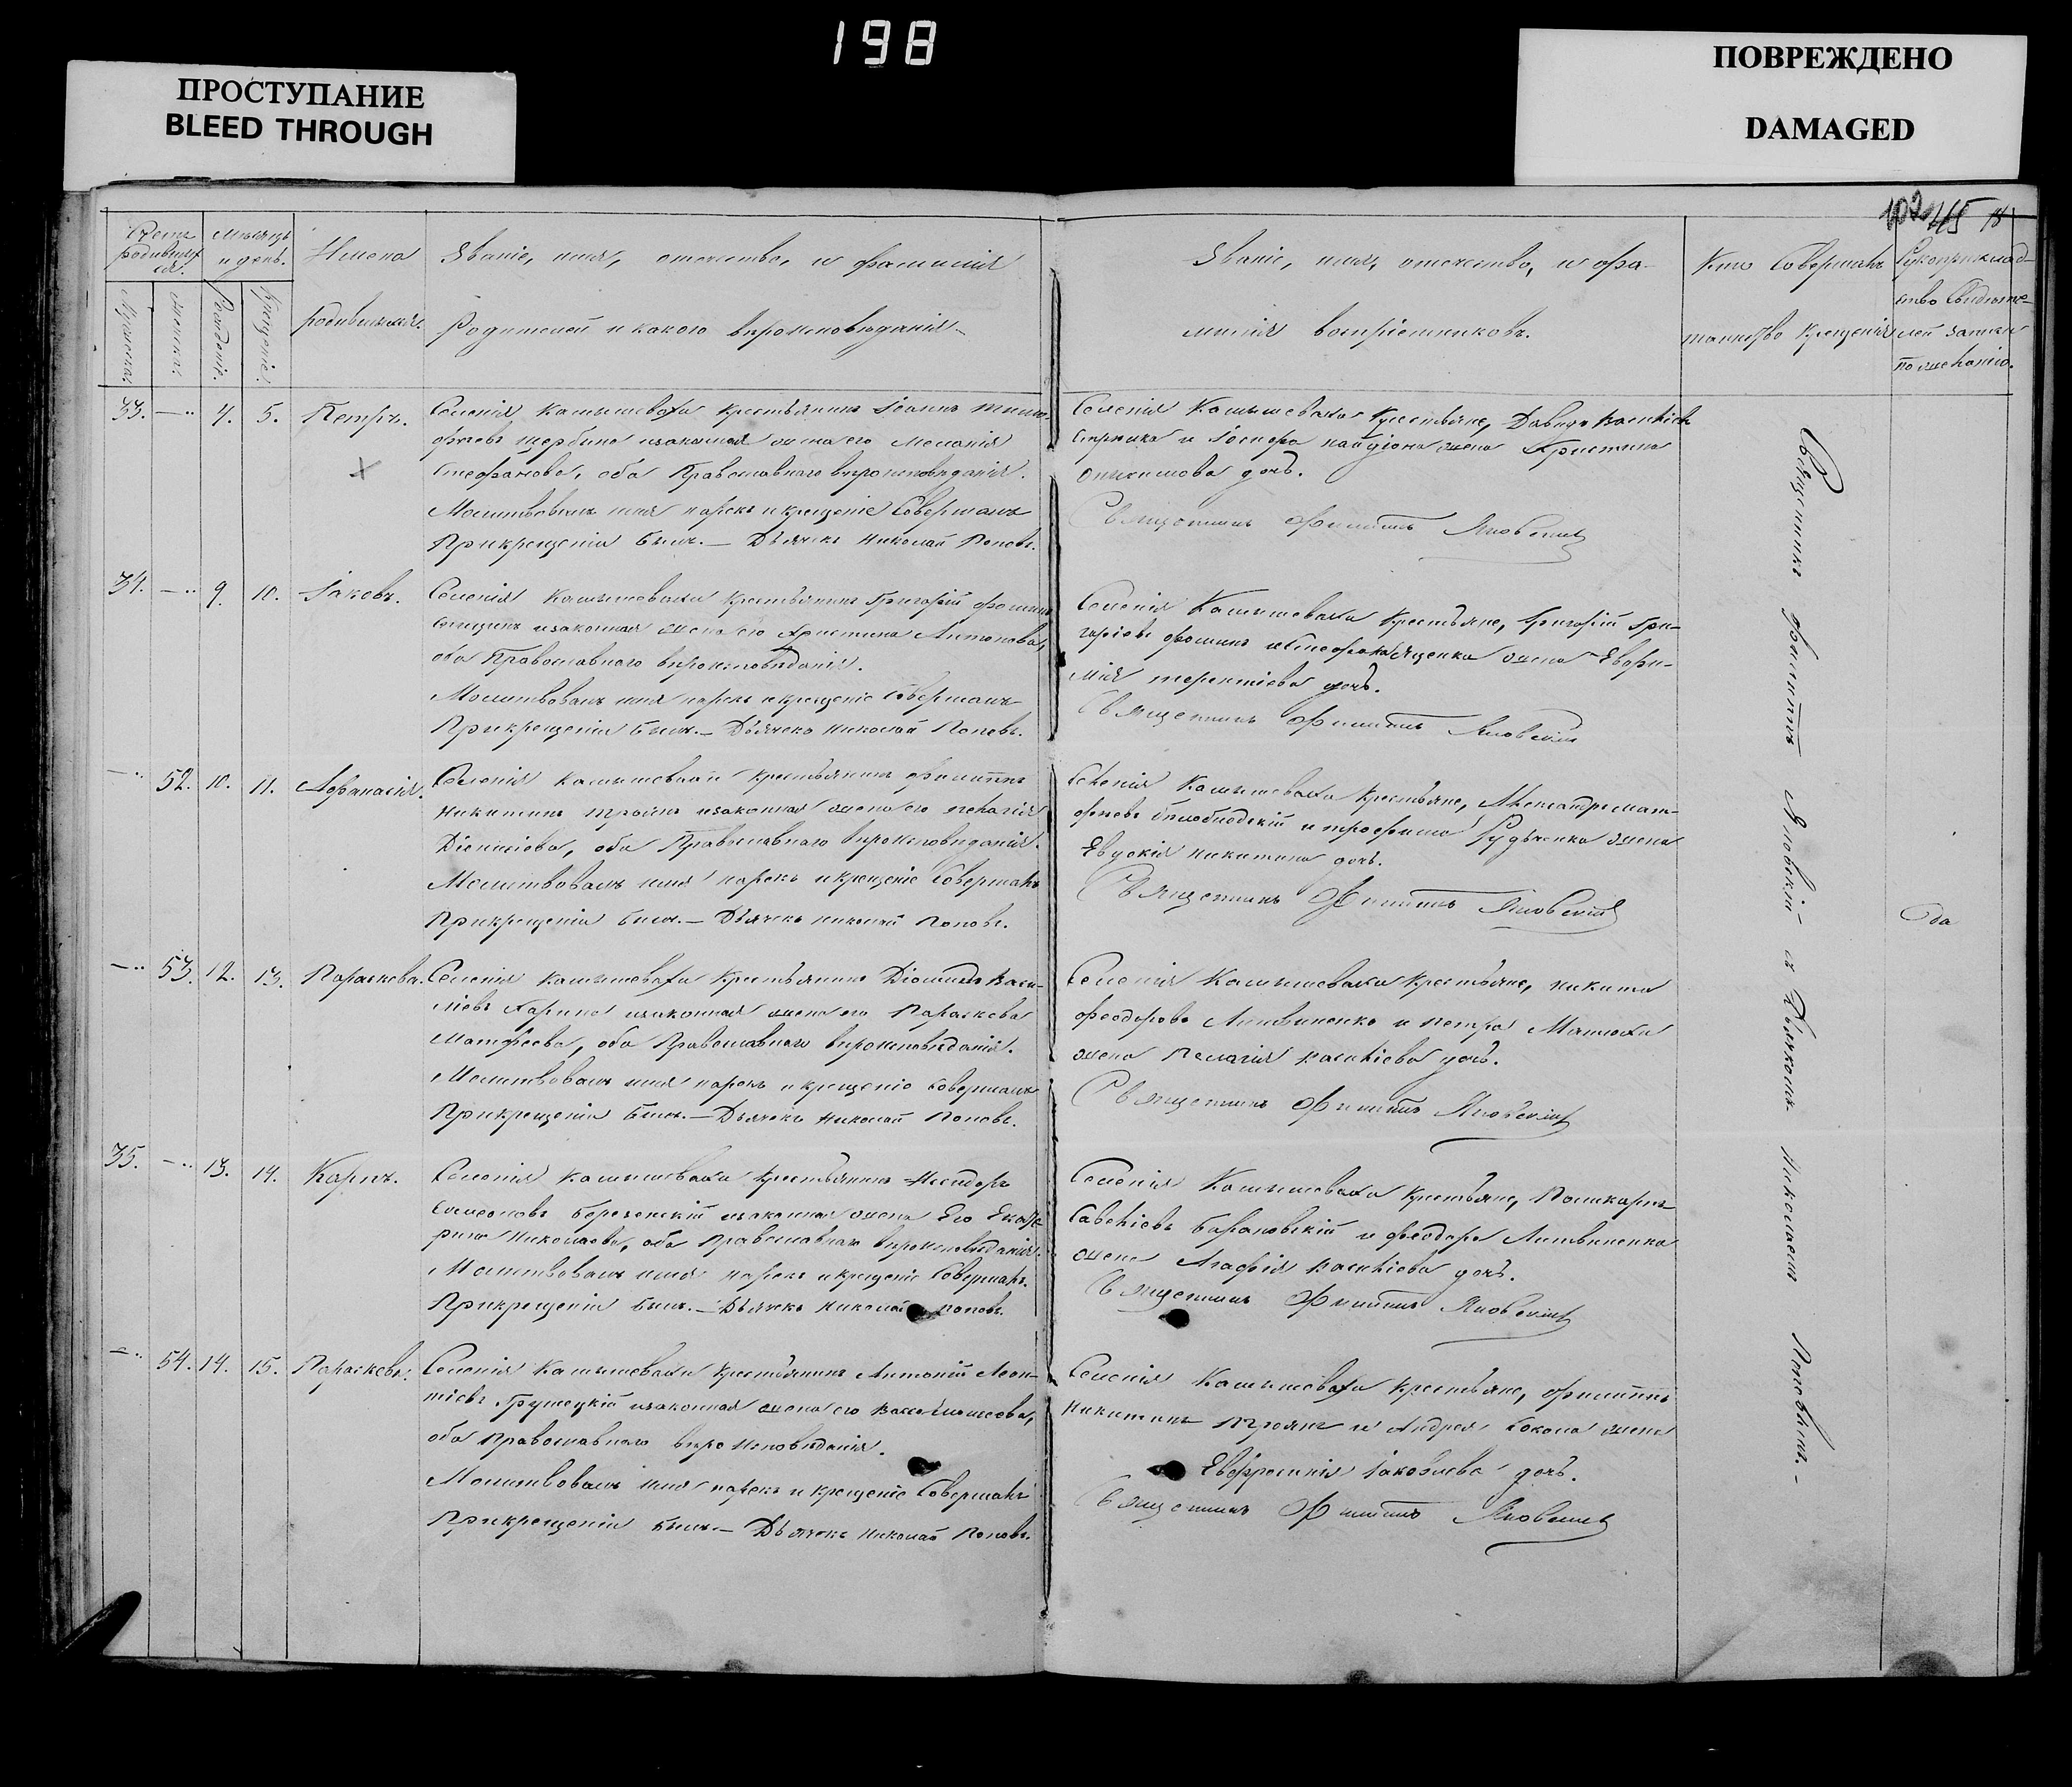 198
ПРОСТУПАНИЕ
BLEED THROUGH
ПОВРЕЖДЕНО
DAMAGED
Счетъ родившихся.
Мѣсяцъ и день.
Имена
родившихся.
Званіе, имя, отечество, и фамилія
Родителей и какого вѣроисповѣданія
Званіе, имя, отечество, и фа-
милія воспріемниковъ.
Кто совершалъ
таинство крещенія
Рукоприклад-
ство свидѣте-
лей записи
по желанію.
Рожденіе.
Крещеніе.
33. 4. 5. Петръ.
Селенія Камышевахи крестьянинъ Іоаннъ Тимо-
фѣевъ Щербина и законная жена его Меланія
Стефанова, оба Православнаго вѣроисповѣданія.
Молитвовалъ имя нарекъ и крещеніе совершалъ
При крещеніи былъ. — Дьячекъ Николай Поповъ.
Селенія Камышевахи крестьяне, Давидъ
и жена Христина
дочь.
Священникъ Филиппъ Яновскій
34. 9. 10. Іаковъ.
Селенія Камышевахи крестьянинъ Григорій
и законная жена его Христина Антонова,
оба Православнаго вѣроисповѣданія.
Молитвовалъ имя нарекъ и крещеніе совершалъ
При крещеніи былъ. — Дьячекъ Николай Поповъ.
Селенія Камышевахи крестьяне, Григорій Гри-
горіевъ жена Евфи-
мія Терентіева дочь.
Священникъ Филиппъ Яновскій
52. 10. 11. Афанасія.
Селенія Камышевахи крестьянинъ Филиппъ
Никитинъ Троянъ и законная жена его
Діонисіева, оба Православнаго вѣроисповѣданія.
Молитвовалъ имя нарекъ и крещеніе совершалъ
При крещеніи былъ. — Дьячекъ Николай Поповъ.
Селенія Камышевахи крестьяне, Александръ Мат-
фѣевъ и Трофима Рудченка жена
Евдокія Никитина дочь.
Священникъ Филиппъ Яновскій
53. 12. 13. Параскева.
Селенія Камышевахи крестьянинъ Діомидъ Васи-
ліевъ Харина и законная жена его Параскева
Матфеева, оба Православнаго вѣроисповѣданія.
Молитвовалъ имя нарекъ и крещеніе совершалъ
При крещеніи былъ. — Дьячекъ Николай Поповъ.
Селенія Камышевахи крестьяне, Никита
Феодоровъ Литвиненко и Петра Матюхи
жена Пелагія Василіева дочь.
Священникъ Филиппъ Яновскій
35. 13. 14. Карпъ.
Селенія Камышевахи крестьянинъ Исидоръ
Симеоновъ и законная жена Его Екате-
рина Николаева, оба Православнаго вѣроисповѣданія.
Молитвовалъ имя нарекъ и крещеніе совершалъ.
При крещеніи былъ. — Дьячекъ Николай Поповъ.
Селенія Камышевахи крестьяне, Поликарпъ
Савеліевъ Барановскій и Феодора Литвиненка
жена Агафія Василіева дочь.
Священникъ Филиппъ Яновскій
54. 14. 15. Параскева.
Селенія Камышевахи крестьянинъ Антоній Леон-
тіевъ Грушецкій и законная жена его
оба Православнаго вѣроисповѣданія.
Молитвовалъ имя нарекъ и крещеніе совершалъ
При крещеніи былъ. — Дьячекъ Николай Поповъ.
Селенія Камышевахи крестьяне, Филиппъ
Никитинъ Троянъ и Андрея Сокола жена
Евфросинія Іаковлева дочь.
Священникъ Филиппъ Яновскій
Священникъ Филиппъ Яновскій съ Дьячкомъ Николаемъ Поповымъ. —